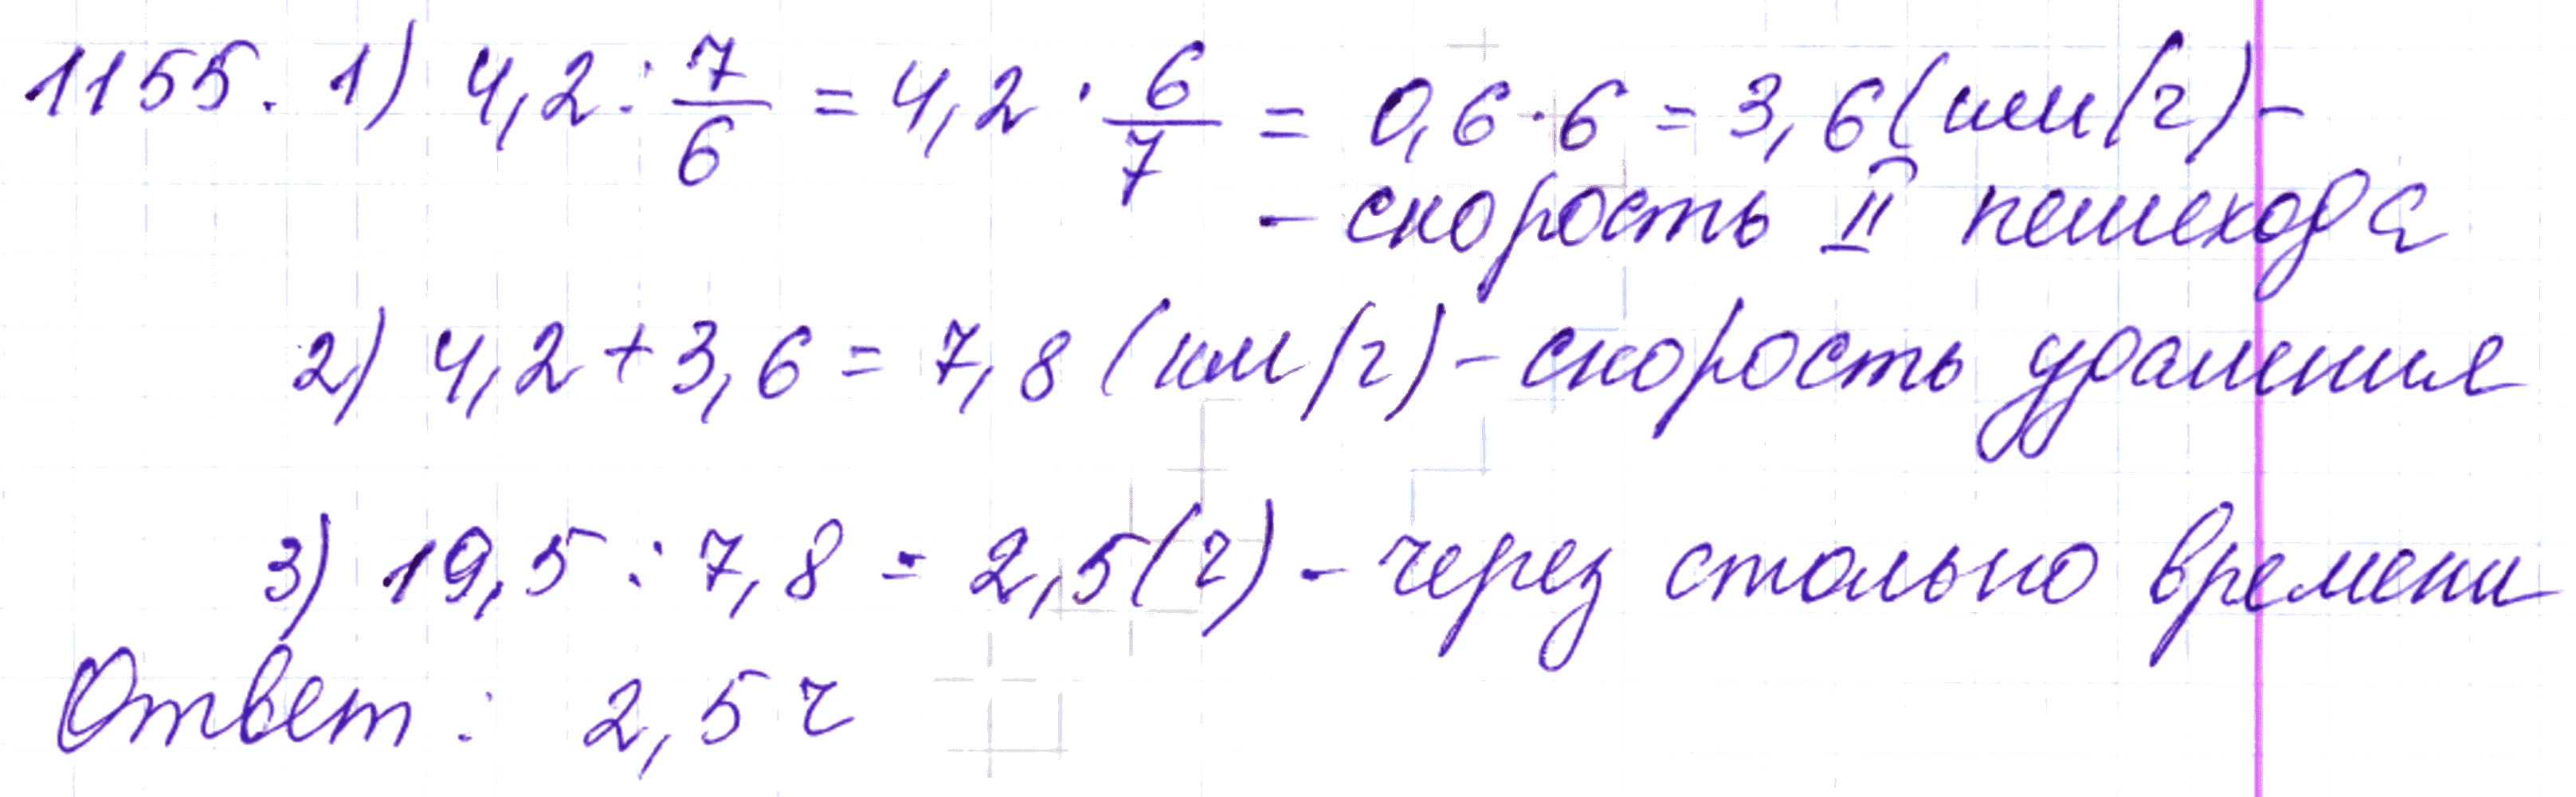 1155. 1) 4,2 : 7/6 = 4,2 · 6/7 = 0,6 · 6 = 3,6 (км/ч) -
- скорость II пешехода
2) 4,2 + 3,6 = 7,8 (км/ч) - скорость удаления
3) 19,5 : 7,8 = 2,5 (ч) - через столько времени
Ответ: 2,5 ч